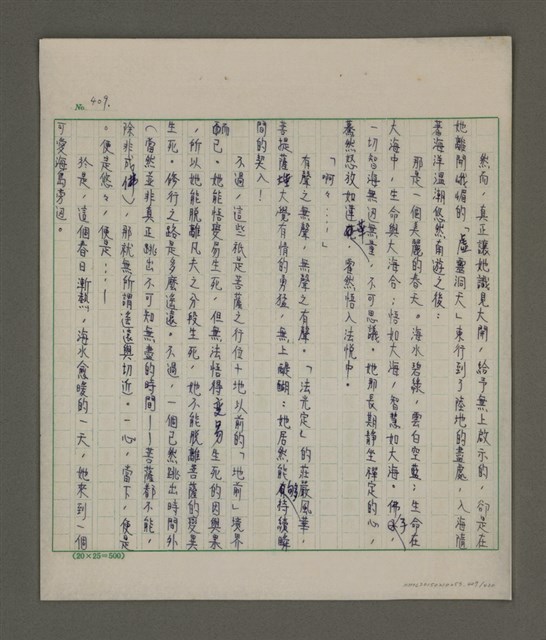 No. 409.
然而，真正讓她識見大開，給予無上啟示的，卻是在
她離開峨嵋的「虛靈洞天」東行到了陸地的盡處，入海隨
著海洋溫潮悠然南遊之後：
那是一個美麗的春天。海水碧綠，雲白空藍；生命在
大海中，生命與大海合；悟如大海，智慧如大海。佛
一切智海無因無量，不可思議。她那長期靜坐禪定的心，
驀然怒放如蓮華，霍然悟入法悅中。
「啊々…！」
有聲之無聲，無聲之有聲。「法光定」的莊嚴風華，
菩提薩埵大覺有情的勇猛，無上醍醐；她居然能夠持續瞬
間的契入！
不過，這些祇是菩薩之行位十地以前的「地前」境界
而已。她能悟變易生死，但無法悟得變易生死的因與果
，所以她能脫離凡夫之分段生死，她不能脫離菩薩的變異
生死。修行之路是多麼遙遠。不過，一個已然跳出時間外
（當然並非真正跳出不可知無盡的時間——菩薩都不能，
除非成佛），那就無所謂遙遠與切近。一心，當下，便是
。便是悠々，便是：：！
於是，這個春日漸熱，海水愈暖的一天，她來到一個
可愛海島旁邊。
(20×25=500)